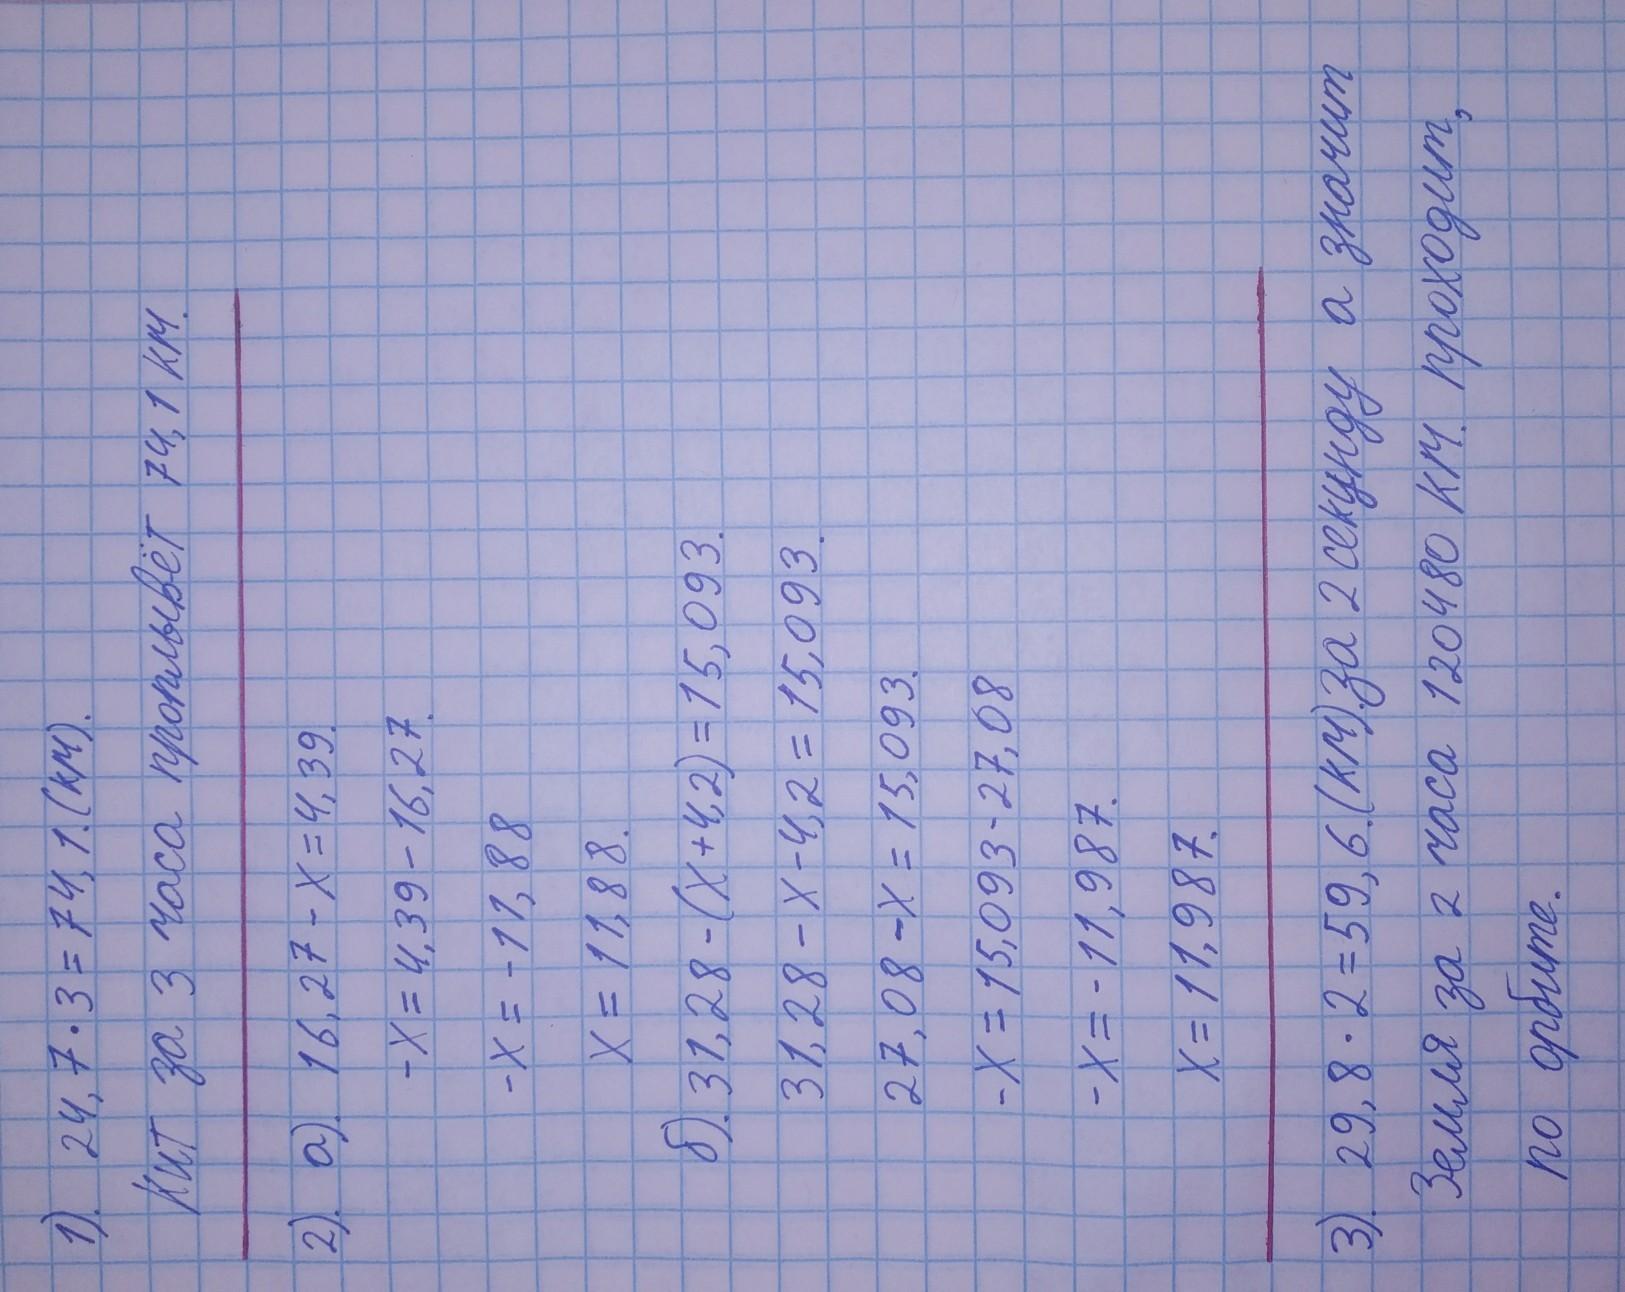 1). 24,7·3=74,1.(км).
Кит за 3 часа проплывёт 74,1 км.
2). а). 16,27-х=4,39.
-х=4,39-16,27.
-х=-11,88
х=11,88.
б). 31,28-(х+4,2)=15,093.
31,28-х-4,2=15,093.
27,08-х=15,093.
-х=15,093-27,08
-х=-11,987.
х=11,987.
3). 29,8·2=59,6.(км).за 2 секунду а значит
Земля за 2 часа 120480 км. проходит,
по орбите.